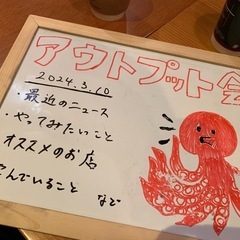 アウトプット会
2024.3.10
・最近のニュース
・やってみたいこと
オススメのお店
んでいること など